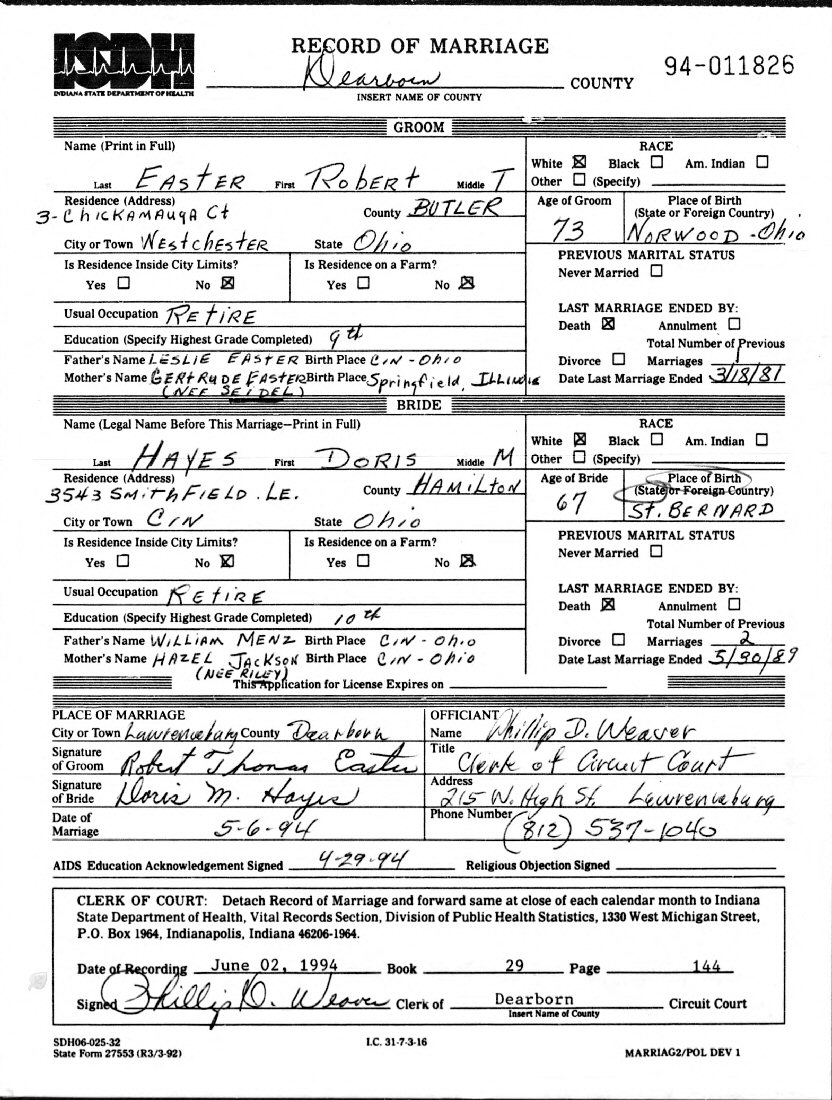 ISDH
INDIANA STATE DEPARTMENT OF HEALTH
RECORD OF MARRIAGE
Dearborn COUNTY
INSERT NAME OF COUNTY
94-011826
GROOM
Name (Print in Full)
Last EASTER First RobERt Middle T
RACE
White ☒ Black ☐ Am. Indian ☐
Other ☐ (Specify)
Residence (Address)
3-ChICKAMAugA Ct
County BUTLER
City or Town WEstchEstER State Ohio
Age of Groom
73
Place of Birth
(State or Foreign Country)
NORWOOD-Ohio
Is Residence Inside City Limits?
Yes ☐ No ☒
Is Residence on a Farm?
Yes ☐ No ☒
PREVIOUS MARITAL STATUS
Never Married ☐
Usual Occupation REtIRE
Education (Specify Highest Grade Completed) 9th
Father's Name LESLIE EASTER Birth Place CIN - Ohio
Mother's Name GERtRuDE EASTER Birth Place Springfield, ILLINOIS
(NEE SEIDEL)
LAST MARRIAGE ENDED BY:
Death ☒ Annulment ☐
Total Number of Previous
Divorce ☐ Marriages 1
Date Last Marriage Ended 3/18/81
BRIDE
Name (Legal Name Before This Marriage—Print in Full)
Last HAYES First DORIS Middle M
RACE
White ☒ Black ☐ Am. Indian ☐
Other ☐ (Specify)
Residence (Address)
3543 SMIthFIELD .LE.
County HAMILTON
City or Town CIN State Ohio
Age of Bride
67
Place of Birth
(State or Foreign Country)
St. BERNARD
Is Residence Inside City Limits?
Yes ☐ No ☒
Is Residence on a Farm?
Yes ☐ No ☒
PREVIOUS MARITAL STATUS
Never Married ☐
Usual Occupation REtIRE
Education (Specify Highest Grade Completed) 10th
Father's Name WILLIAM MENZ Birth Place CIN - Ohio
Mother's Name HAZEL JACKSON Birth Place CIN - Ohio
(NEE RILEY)
LAST MARRIAGE ENDED BY:
Death ☒ Annulment ☐
Total Number of Previous
Divorce ☐ Marriages 2
Date Last Marriage Ended 5/30/89
This Application for License Expires on
PLACE OF MARRIAGE
City or Town Lawrenceburg County Dearborn
Signature
of Groom Robert Thomas Easter
Signature
of Bride Doris M. Hayes
Date of
Marriage 5-6-94
OFFICIANT
Name Phillip D. Weaver
Title
Clerk of Circuit Court
Address
215 W. High St. Lawrenceburg
Phone Number (812) 537-1040
AIDS Education Acknowledgement Signed 4-29-94 Religious Objection Signed
CLERK OF COURT: Detach Record of Marriage and forward same at close of each calendar month to Indiana
State Department of Health, Vital Records Section, Division of Public Health Statistics, 1330 West Michigan Street,
P.O. Box 1964, Indianapolis, Indiana 46206-1964.
Date of Recording June 02, 1994 Book 29 Page 144
Signed Phillip D. Weaver Clerk of Dearborn Circuit Court
Insert Name of County
SDH06-025-32
State Form 27553 (R3/3-92)
I.C. 31-7-3-16
MARRIAG2/POL DEV 1